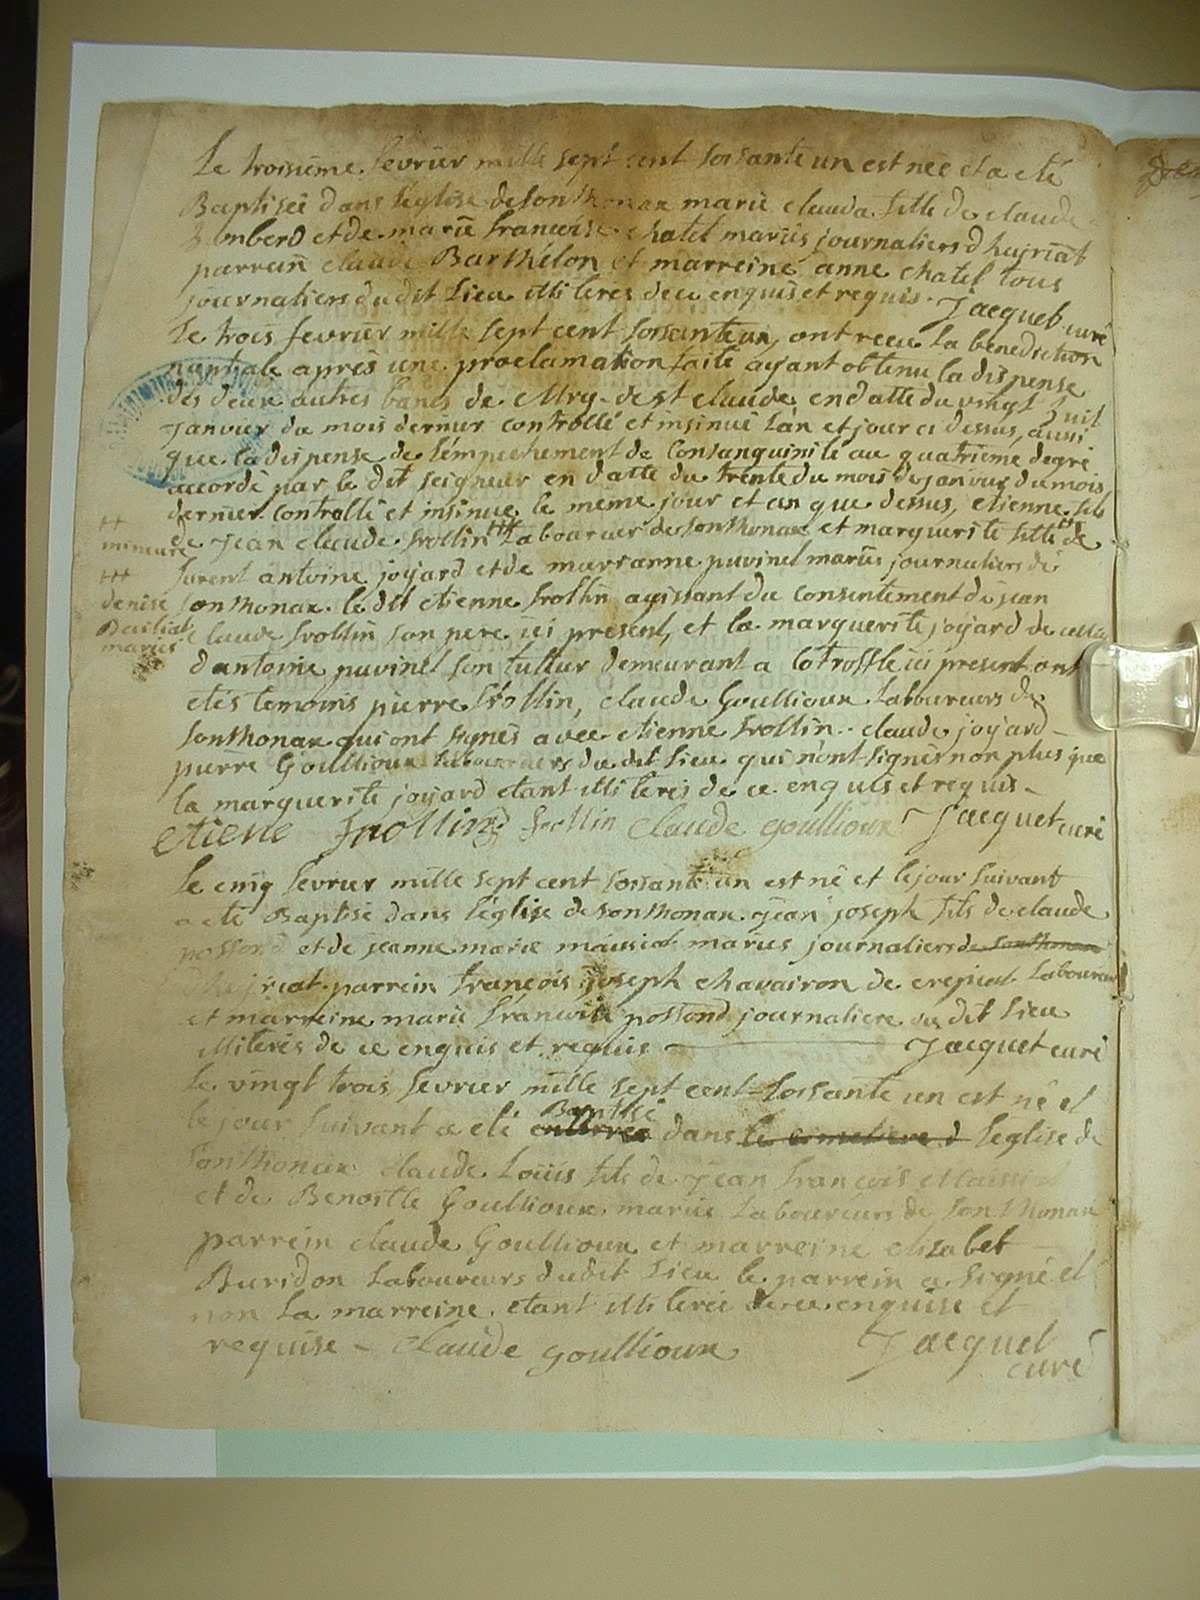 Le troisieme fevrier mille sept cent soisante un est née et a eté
Baptisée dans l'eglise de sonthonax marie claudā fille de claude
humberd et de marie francoise chatel mariés journaliers d'hajriat
parrain claude Barthélon et marreine anne chatel tous
journaliers du dit lieu illiteres de ce enquis et requis. Jacquet curé
Le trois fevrier mille sept cent soisante un, ont receu la benediction
nuptiale aprés une proclamation faite ayant obtenu la dispense
des deux autres bancs de Mrg. de st claude en datte du vingt huit
janvier du mois dernier controllé et insinué l'an et jour ci dessus, aussi
que la dispense de l'empechement de consanguinité au quatrieme degré
accordé par le dit seigneur en datte du trente du mois de janvier du mois
dernier. controllé et insinué le meme jour et an que dessus, etienne fils
de jean claude frollin ╫ laboureur de sonthonax et marguerite fille ╫ de
furent antoine joyard et de marianne puvinel mariés journaliers de
sonthonax. le dit etienne frollin agissant du consentement de jean
claude frollin son pere ici present, et la marguerite joyard de celui
d'antoine puvinel son tuteur demeurant a ici present. ont
etés temoins pierre frollin, claude Goullioux laboureurs de
sonthonax qui ont signés avec etienne frollin.. claude joyard
pierre Goullioux laboureurs du dit lieu qui n'ont signés non plus que
la marguerite joyard etant illiterés de ce enquis et requis
etiene frollin frollin claude goullioux Jacquet curé
++
mineure
+++
denise
Bailiat
mariés
Le cinq fevrier mille sept cent soisante un est né et le jour suivant
a eté Baptisé dans l'église de sonthonax jean joseph fils de claude
possond et de jeanne marie mausiat mariés journaliers de sonthonax
d'hajriat. parrein françois joseph chavairon de crepiat laboureur
et marreine marie francoise possond journaliere du dit lieu
illiterés de ce enquis et requis Jacquet curé
Le vingt trois fevrier mille sept cent soisante un est né et
le jour suivant a eté enterrée Baptisé dans le cimetiere d l'eglise de
sonthonax claude Louis fils de jean francois
et de Benoitte Goullioux mariés laboureurs de sonthonax
parrein claude Goullioux et marreine elisabet
Buridon laboureurs dudit lieu le parrein a signé et
non la marreine etant illiterée de ce enquise et
requise - claude goullioux Jacquet
curé